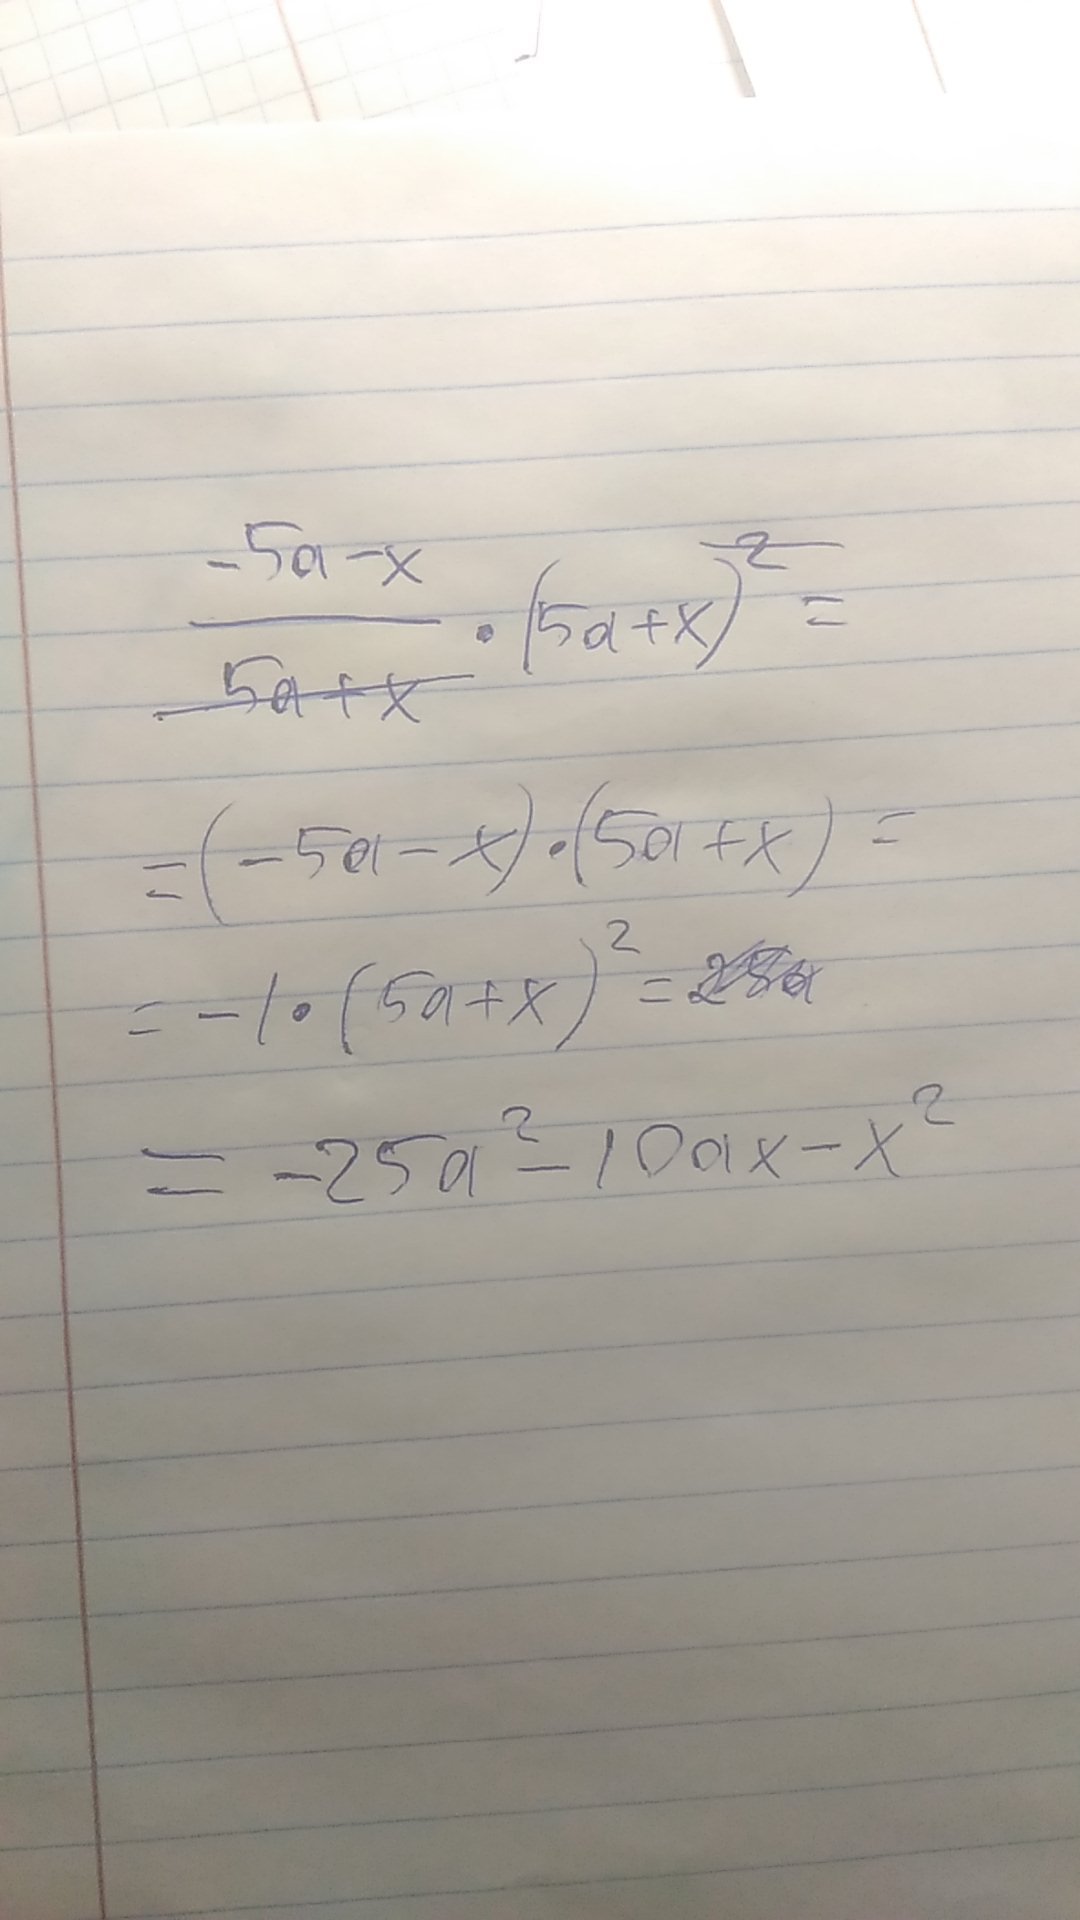 -5a-x
/
5a+x · (5a+x)² =
= (-5a-x)·(5a+x) =
= -1·(5a+x)² = 25a
= -25a² - 10ax - x²